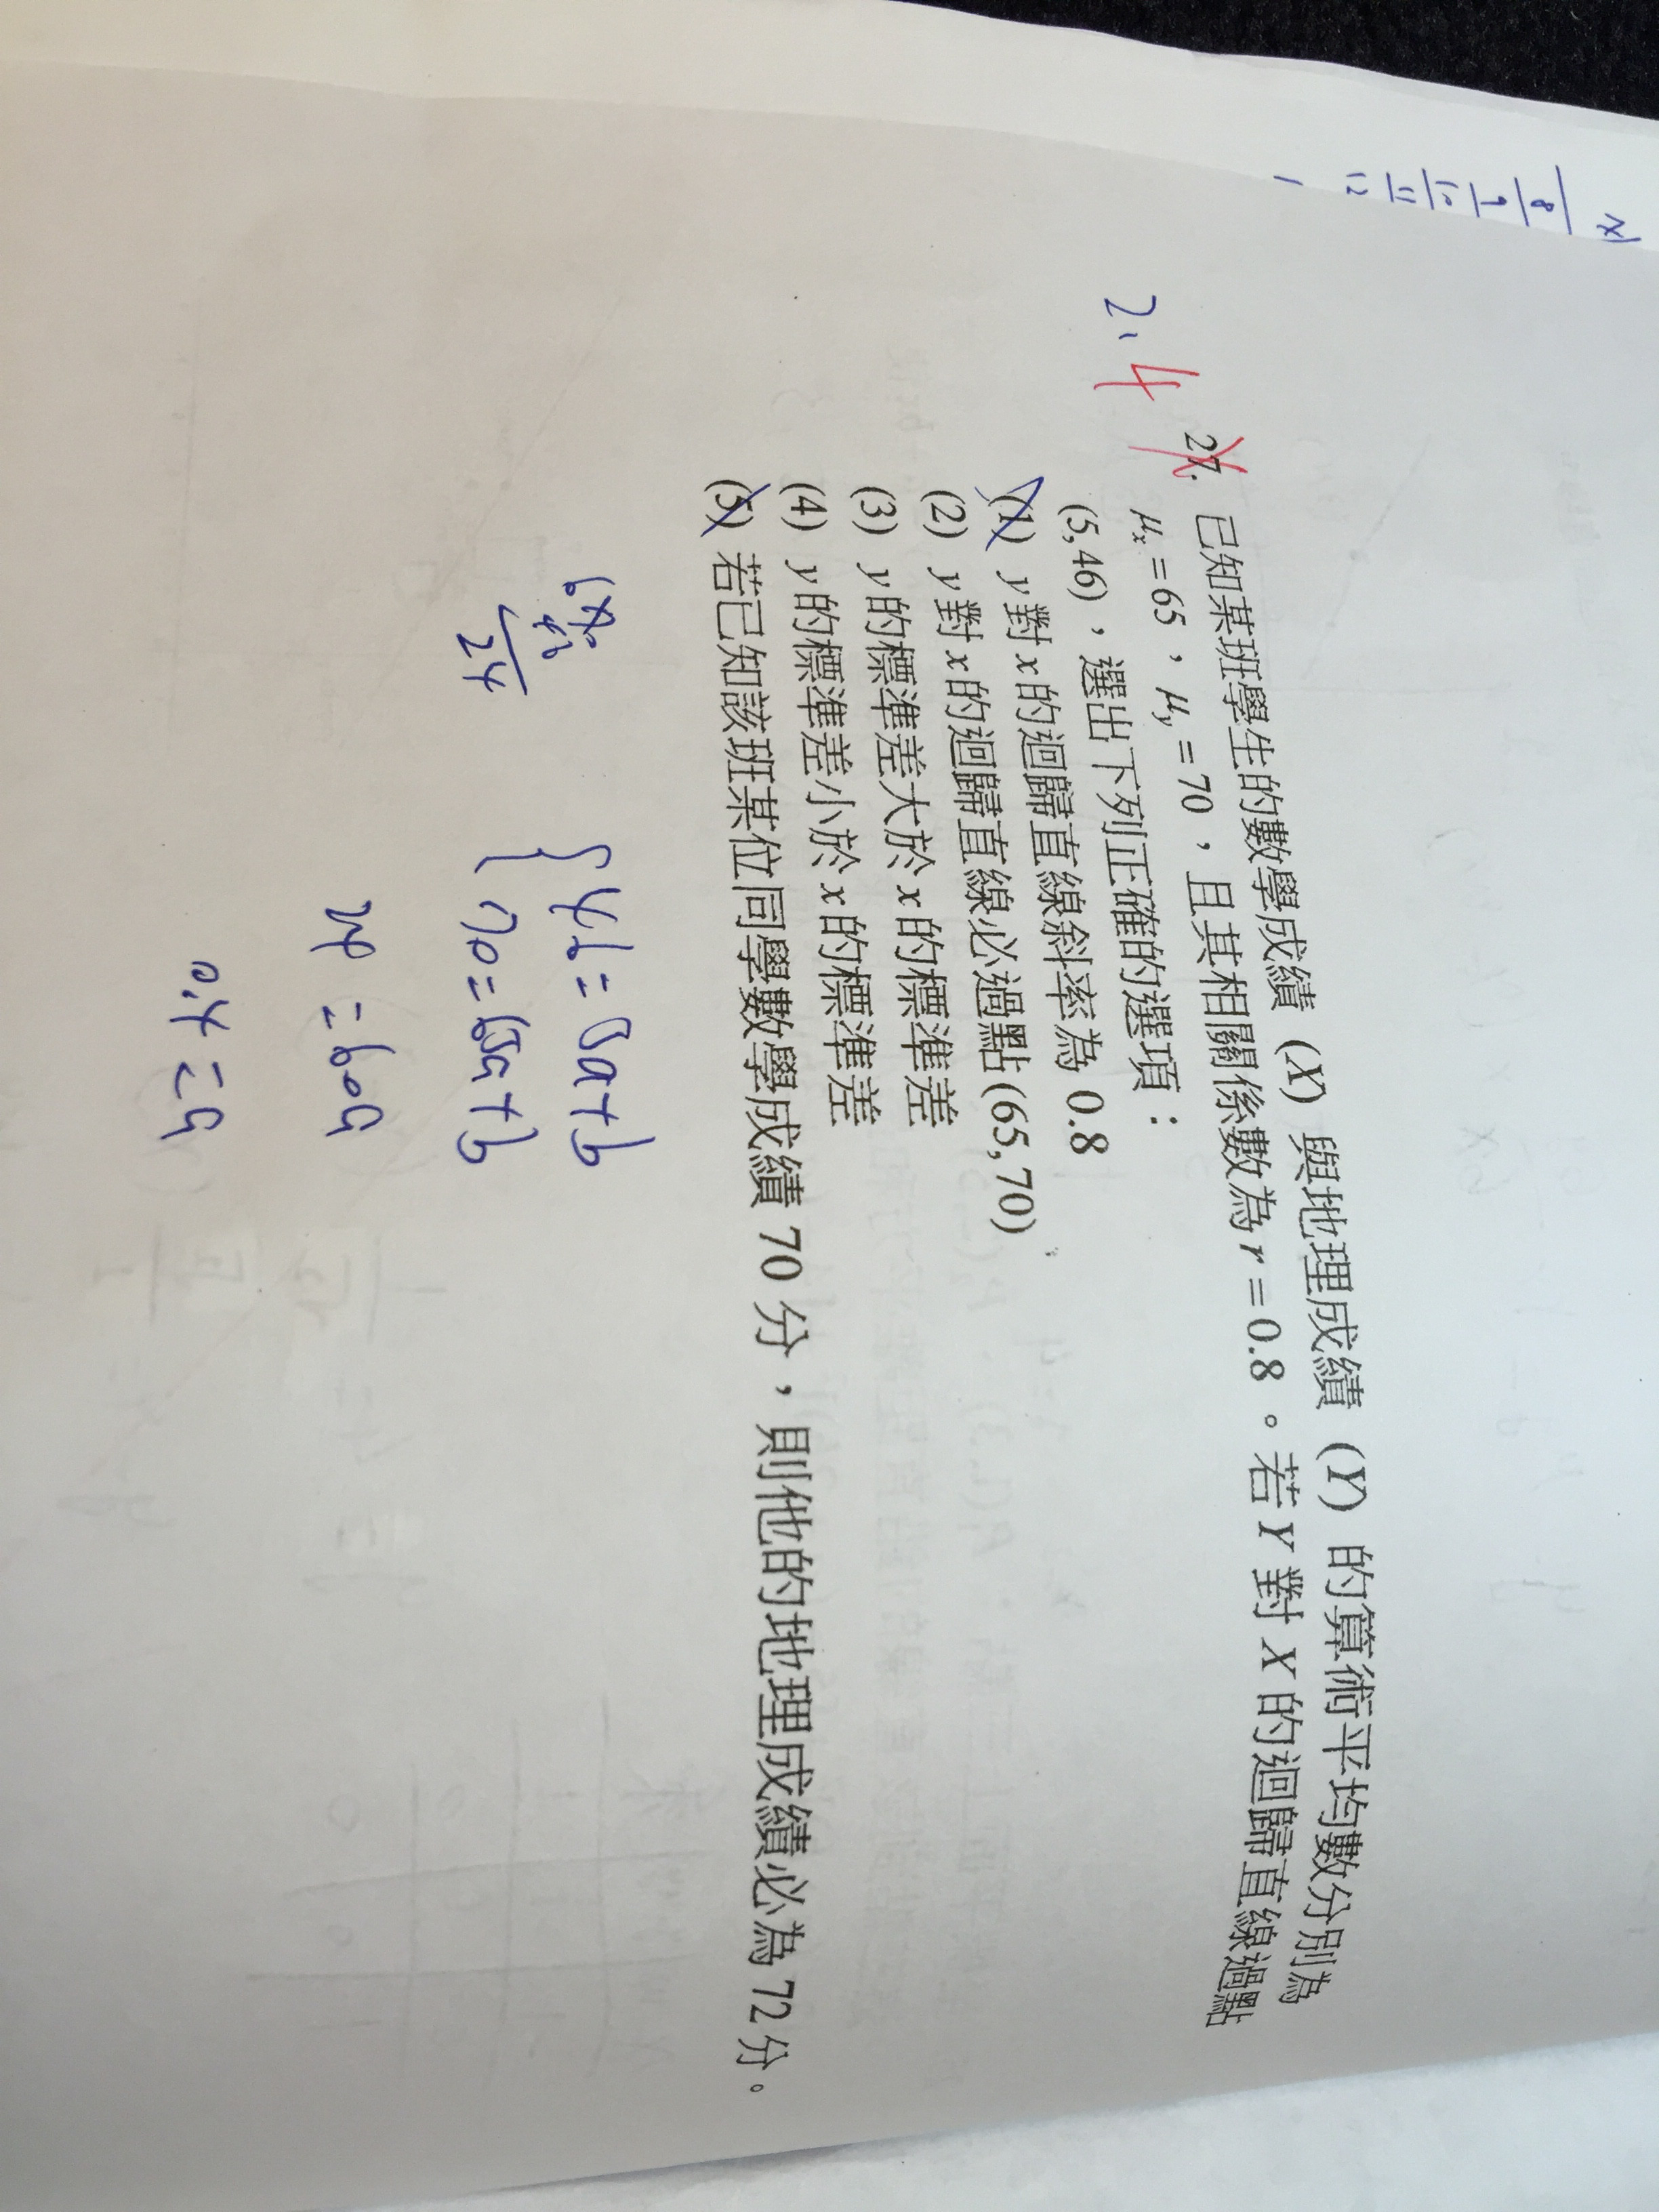 x
8
9
10
11
12
1
2,4
27. 已知某班學生的數學成績 (X) 與地理成績 (Y) 的算術平均數分別為
μx=65，μy=70，且其相關係數為 r=0.8。若 Y 對 X 的迴歸直線過點
(5,46)，選出下列正確的選項：
(1) y 對 x 的迴歸直線斜率為 0.8
(2) y 對 x 的迴歸直線必過點(65,70)
(3) y 的標準差大於 x 的標準差
(4) y 的標準差小於 x 的標準差
(5) 若已知該班某位同學數學成績 70 分，則他的地理成績必為 72 分。
46
24
46=5a+b
70=65a+b
24=60a
0.4=a